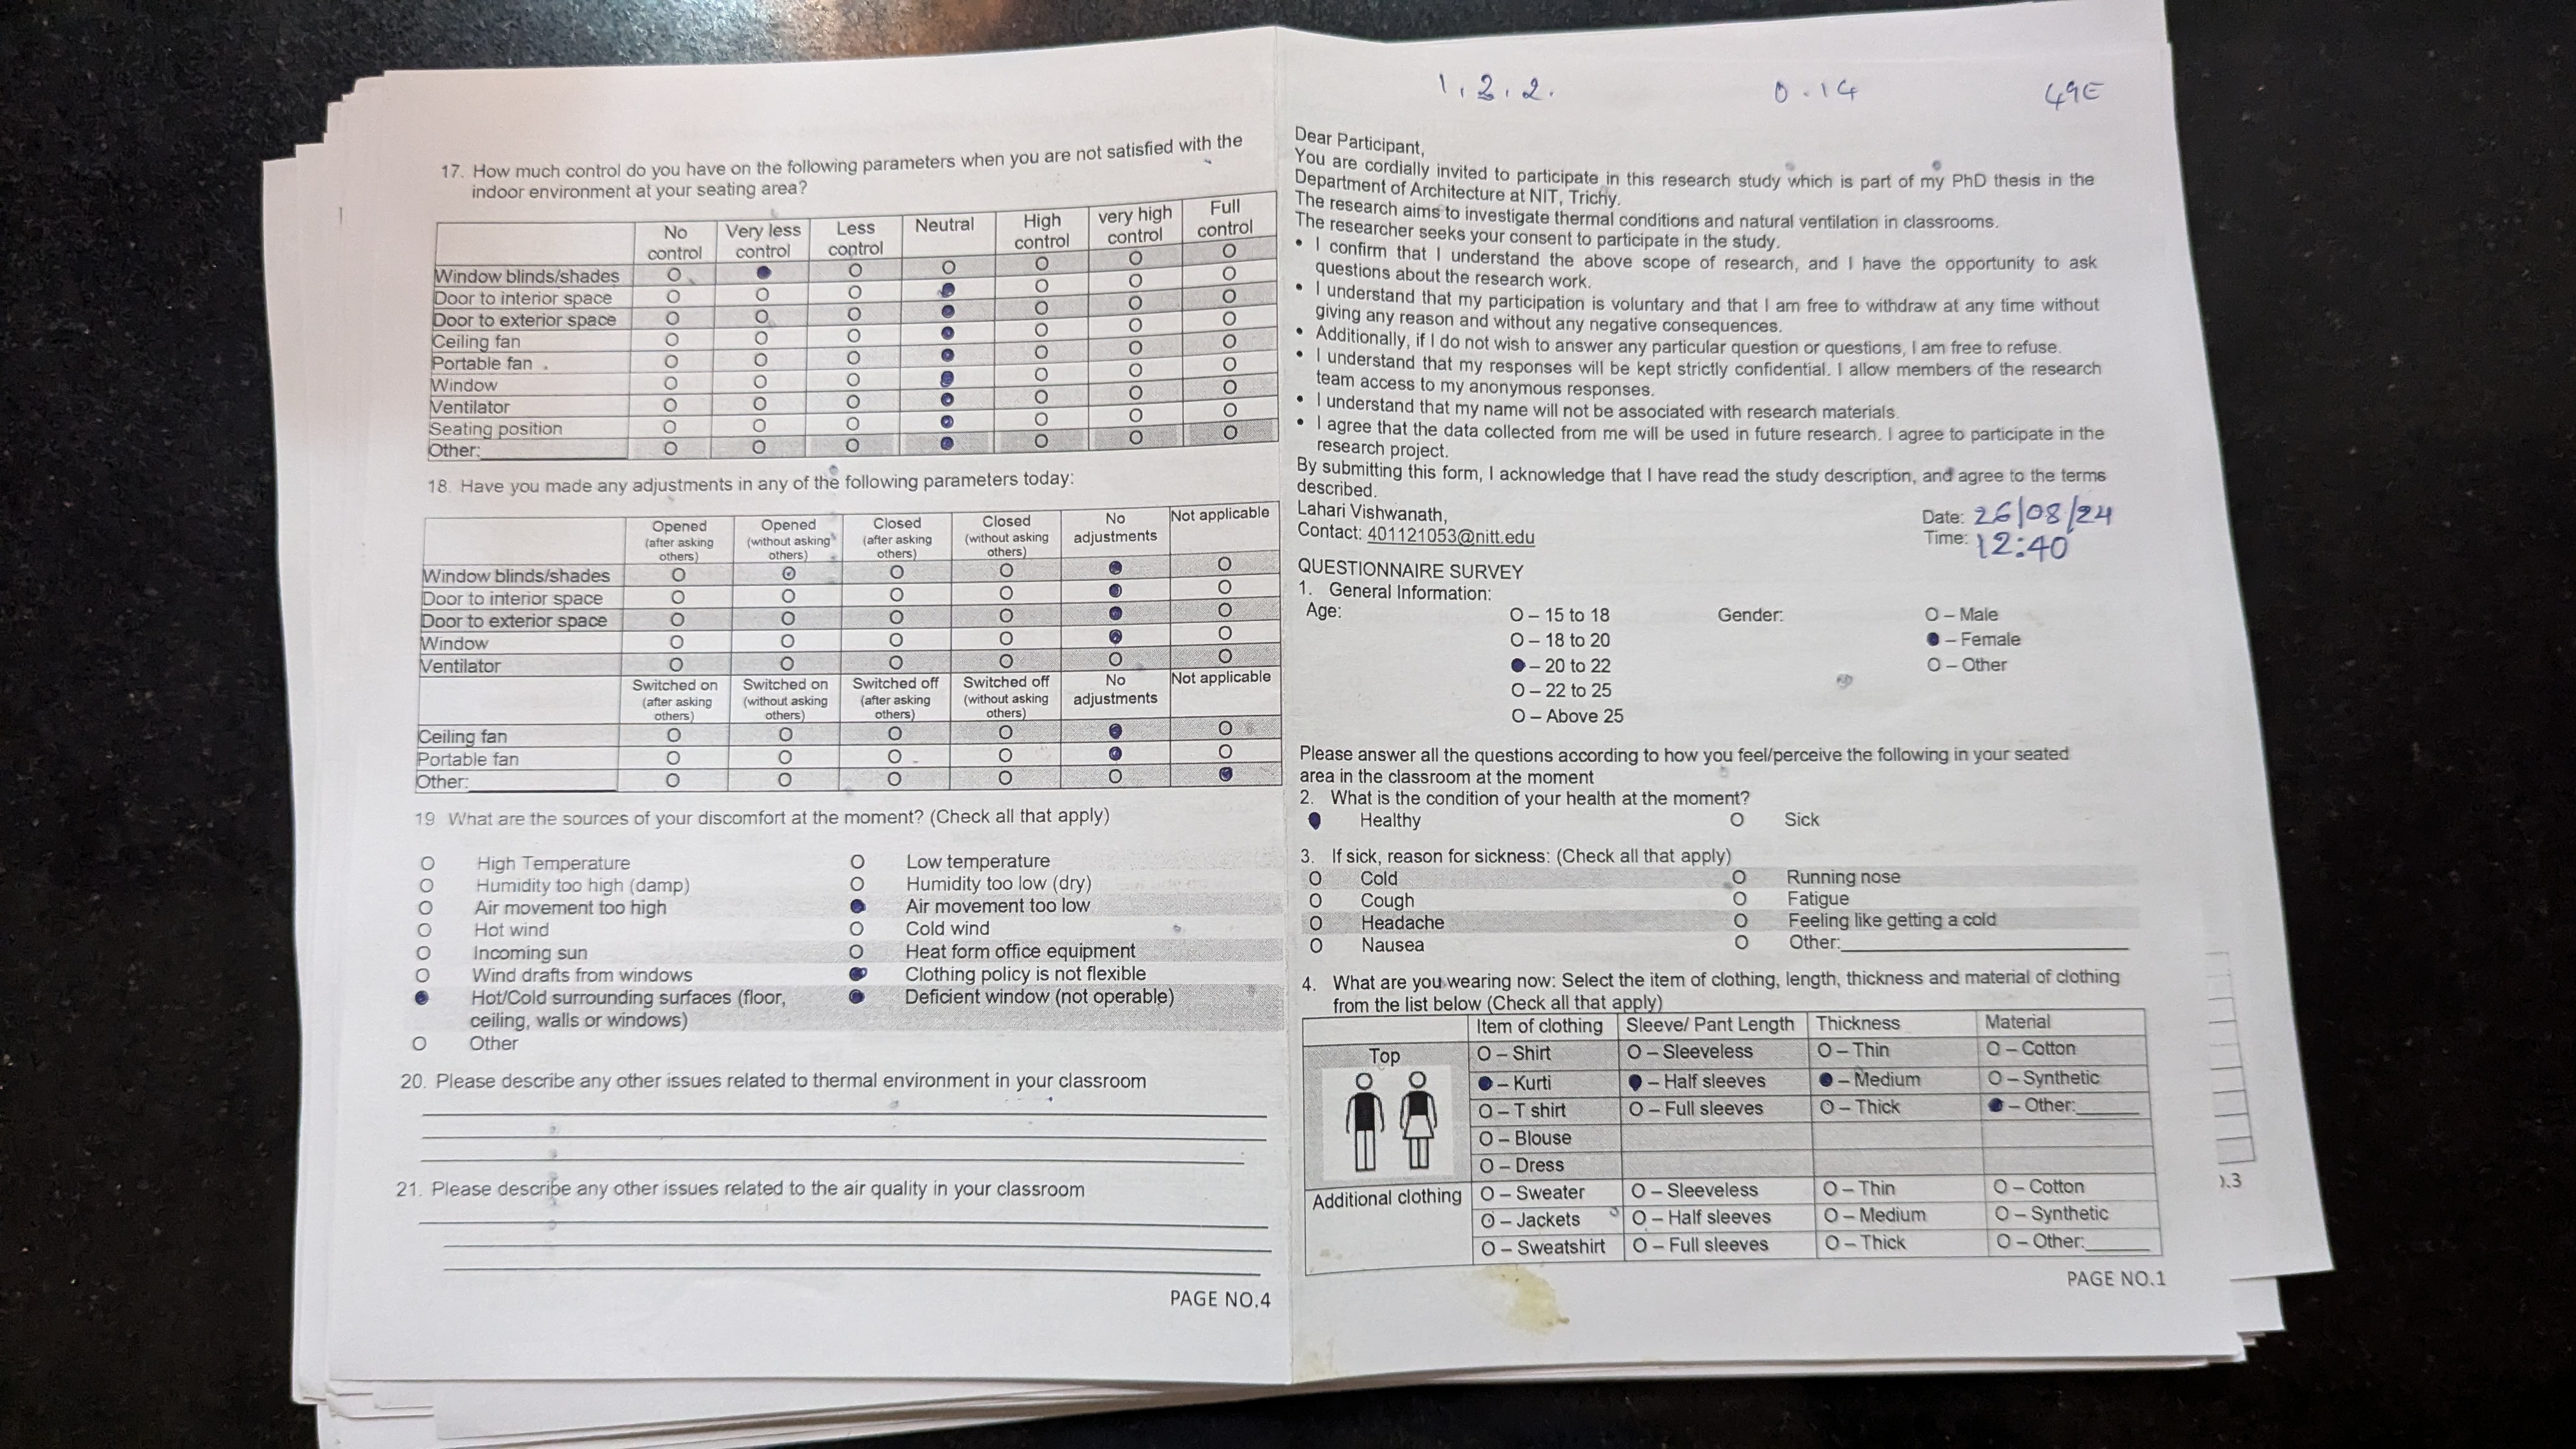 17. How much control do you have on the following parameters when you are not satisfied with the
indoor environment at your seating area?
No control Very less control Less control Neutral High control very high control Full control
Window blinds/shades O ● O O O O O
Door to interior space O O O ● O O O
Door to exterior space O O O ● O O O
Ceiling fan O O O ● O O O
Portable fan O O O ● O O O
Window O O O ● O O O
Ventilator O O O ● O O O
Seating position O O O ● O O O
Other:________ O O O ● O O O
18. Have you made any adjustments in any of the following parameters today:
Opened (after asking others) Opened (without asking others) Closed (after asking others) Closed (without asking others) No adjustments Not applicable
Window blinds/shades O O O O ● O
Door to interior space O O O O ● O
Door to exterior space O O O O ● O
Window O O O O ● O
Ventilator O O O O O O
Switched on (after asking others) Switched on (without asking others) Switched off (after asking others) Switched off (without asking others) No adjustments Not applicable
Ceiling fan O O O O ● O
Portable fan O O O O ● O
Other:________ O O O O O ●
19 What are the sources of your discomfort at the moment? (Check all that apply)
O High Temperature O Low temperature
O Humidity too high (damp) O Humidity too low (dry)
O Air movement too high ● Air movement too low
O Hot wind O Cold wind
O Incoming sun O Heat form office equipment
O Wind drafts from windows ● Clothing policy is not flexible
● Hot/Cold surrounding surfaces (floor, ● Deficient window (not operable)
ceiling, walls or windows)
O Other
20. Please describe any other issues related to thermal environment in your classroom
21. Please describe any other issues related to the air quality in your classroom
PAGE NO.4
1,2,2. 0.14 49E
Dear Participant,
You are cordially invited to participate in this research study which is part of my PhD thesis in the
Department of Architecture at NIT, Trichy.
The research aims to investigate thermal conditions and natural ventilation in classrooms.
The researcher seeks your consent to participate in the study.
• I confirm that I understand the above scope of research, and I have the opportunity to ask
questions about the research work.
• I understand that my participation is voluntary and that I am free to withdraw at any time without
giving any reason and without any negative consequences.
• Additionally, if I do not wish to answer any particular question or questions, I am free to refuse.
• I understand that my responses will be kept strictly confidential. I allow members of the research
team access to my anonymous responses.
• I understand that my name will not be associated with research materials.
• I agree that the data collected from me will be used in future research. I agree to participate in the
research project.
By submitting this form, I acknowledge that I have read the study description, and agree to the terms
described.
Lahari Vishwanath, Date: 26/08/24
Contact: 401121053@nitt.edu Time: 12:40
QUESTIONNAIRE SURVEY
1. General Information:
Age: O – 15 to 18 Gender: O – Male
O – 18 to 20 ● – Female
● – 20 to 22 O – Other
O – 22 to 25
O – Above 25
Please answer all the questions according to how you feel/perceive the following in your seated
area in the classroom at the moment
2. What is the condition of your health at the moment?
● Healthy O Sick
3. If sick, reason for sickness: (Check all that apply)
O Cold O Running nose
O Cough O Fatigue
O Headache O Feeling like getting a cold
O Nausea O Other:________
4. What are you wearing now: Select the item of clothing, length, thickness and material of clothing
from the list below (Check all that apply)
Item of clothing Sleeve/ Pant Length Thickness Material
Top O – Shirt O – Sleeveless O – Thin O – Cotton
● – Kurti ● – Half sleeves ● – Medium O – Synthetic
O – T shirt O – Full sleeves O – Thick ● – Other:______
O – Blouse
O – Dress
Additional clothing O – Sweater O – Sleeveless O – Thin O – Cotton
O – Jackets O – Half sleeves O – Medium O – Synthetic
O – Sweatshirt O – Full sleeves O – Thick O – Other:______
PAGE NO.1